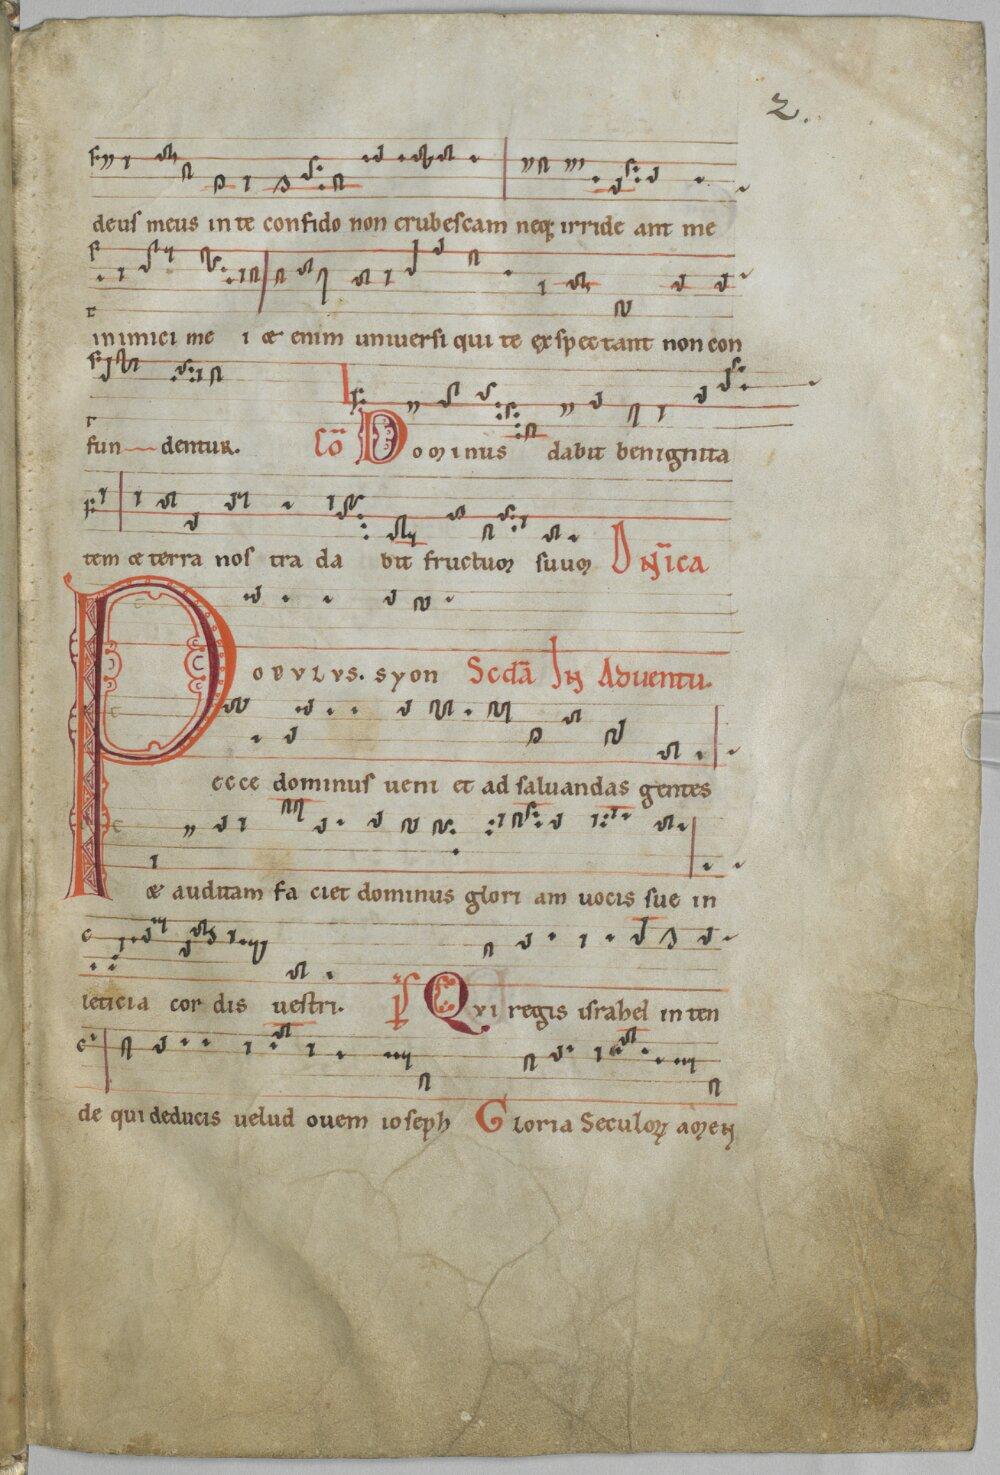 2.
deus meus in te confido non erubescam neq; irride ant me
inimici me i & enim uniuersi qui te exspectant non con
fun dentur. Cō Dominus dabit benignita
tem & terra nos tra da bit fructum suum Dn̄ica
Populus. syon Scdā In Aduentu.
ecce dominus ueni et ad saluandas gentes
& auditam fa ciet dominus glori am uocis sue in
leticia cor dis uestri. p̄s Qvi regis israhel inten
de qui deducis uelud ouem ioseph Gloria Seculorum amen